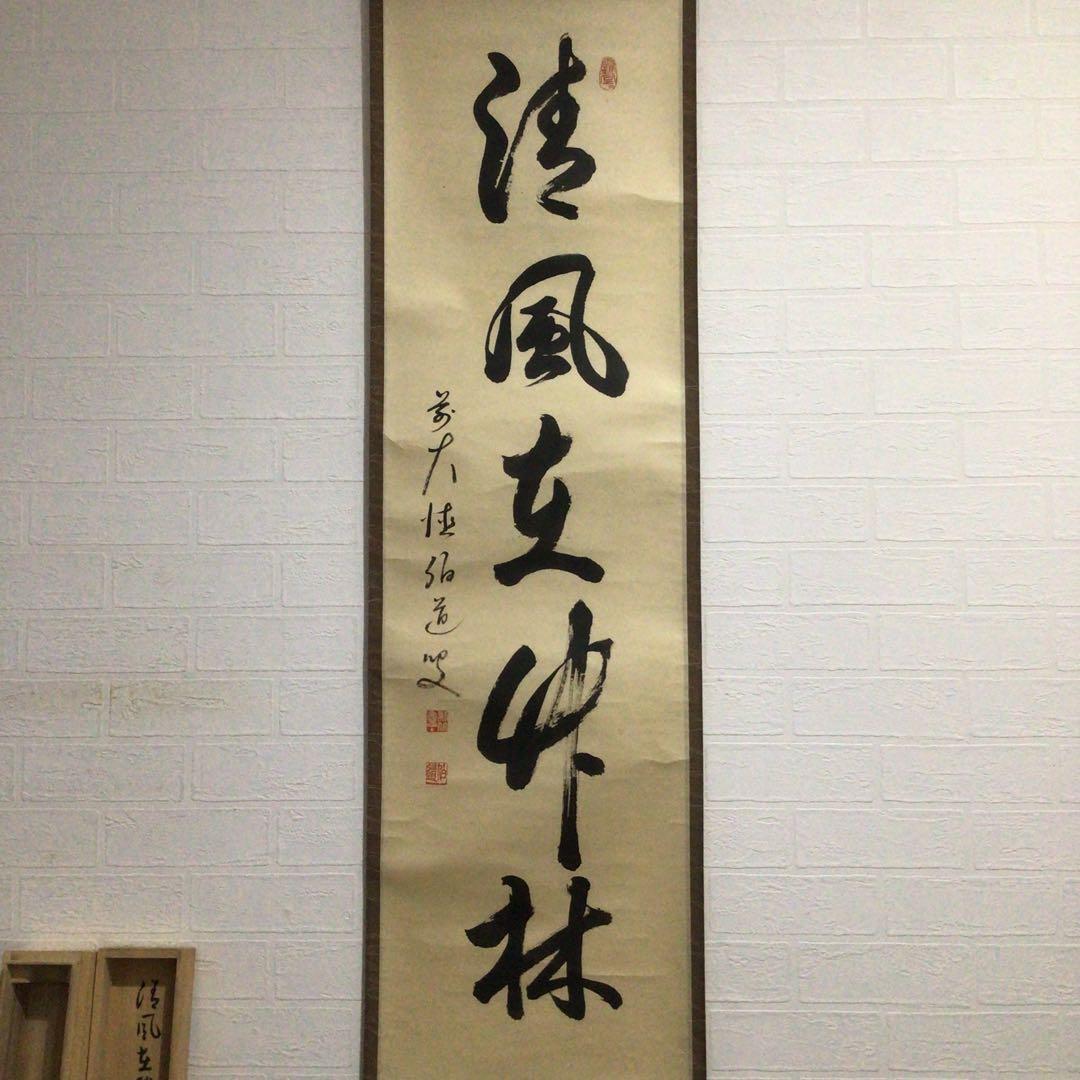 清風在竹林
前大徳伯道叟
清風在